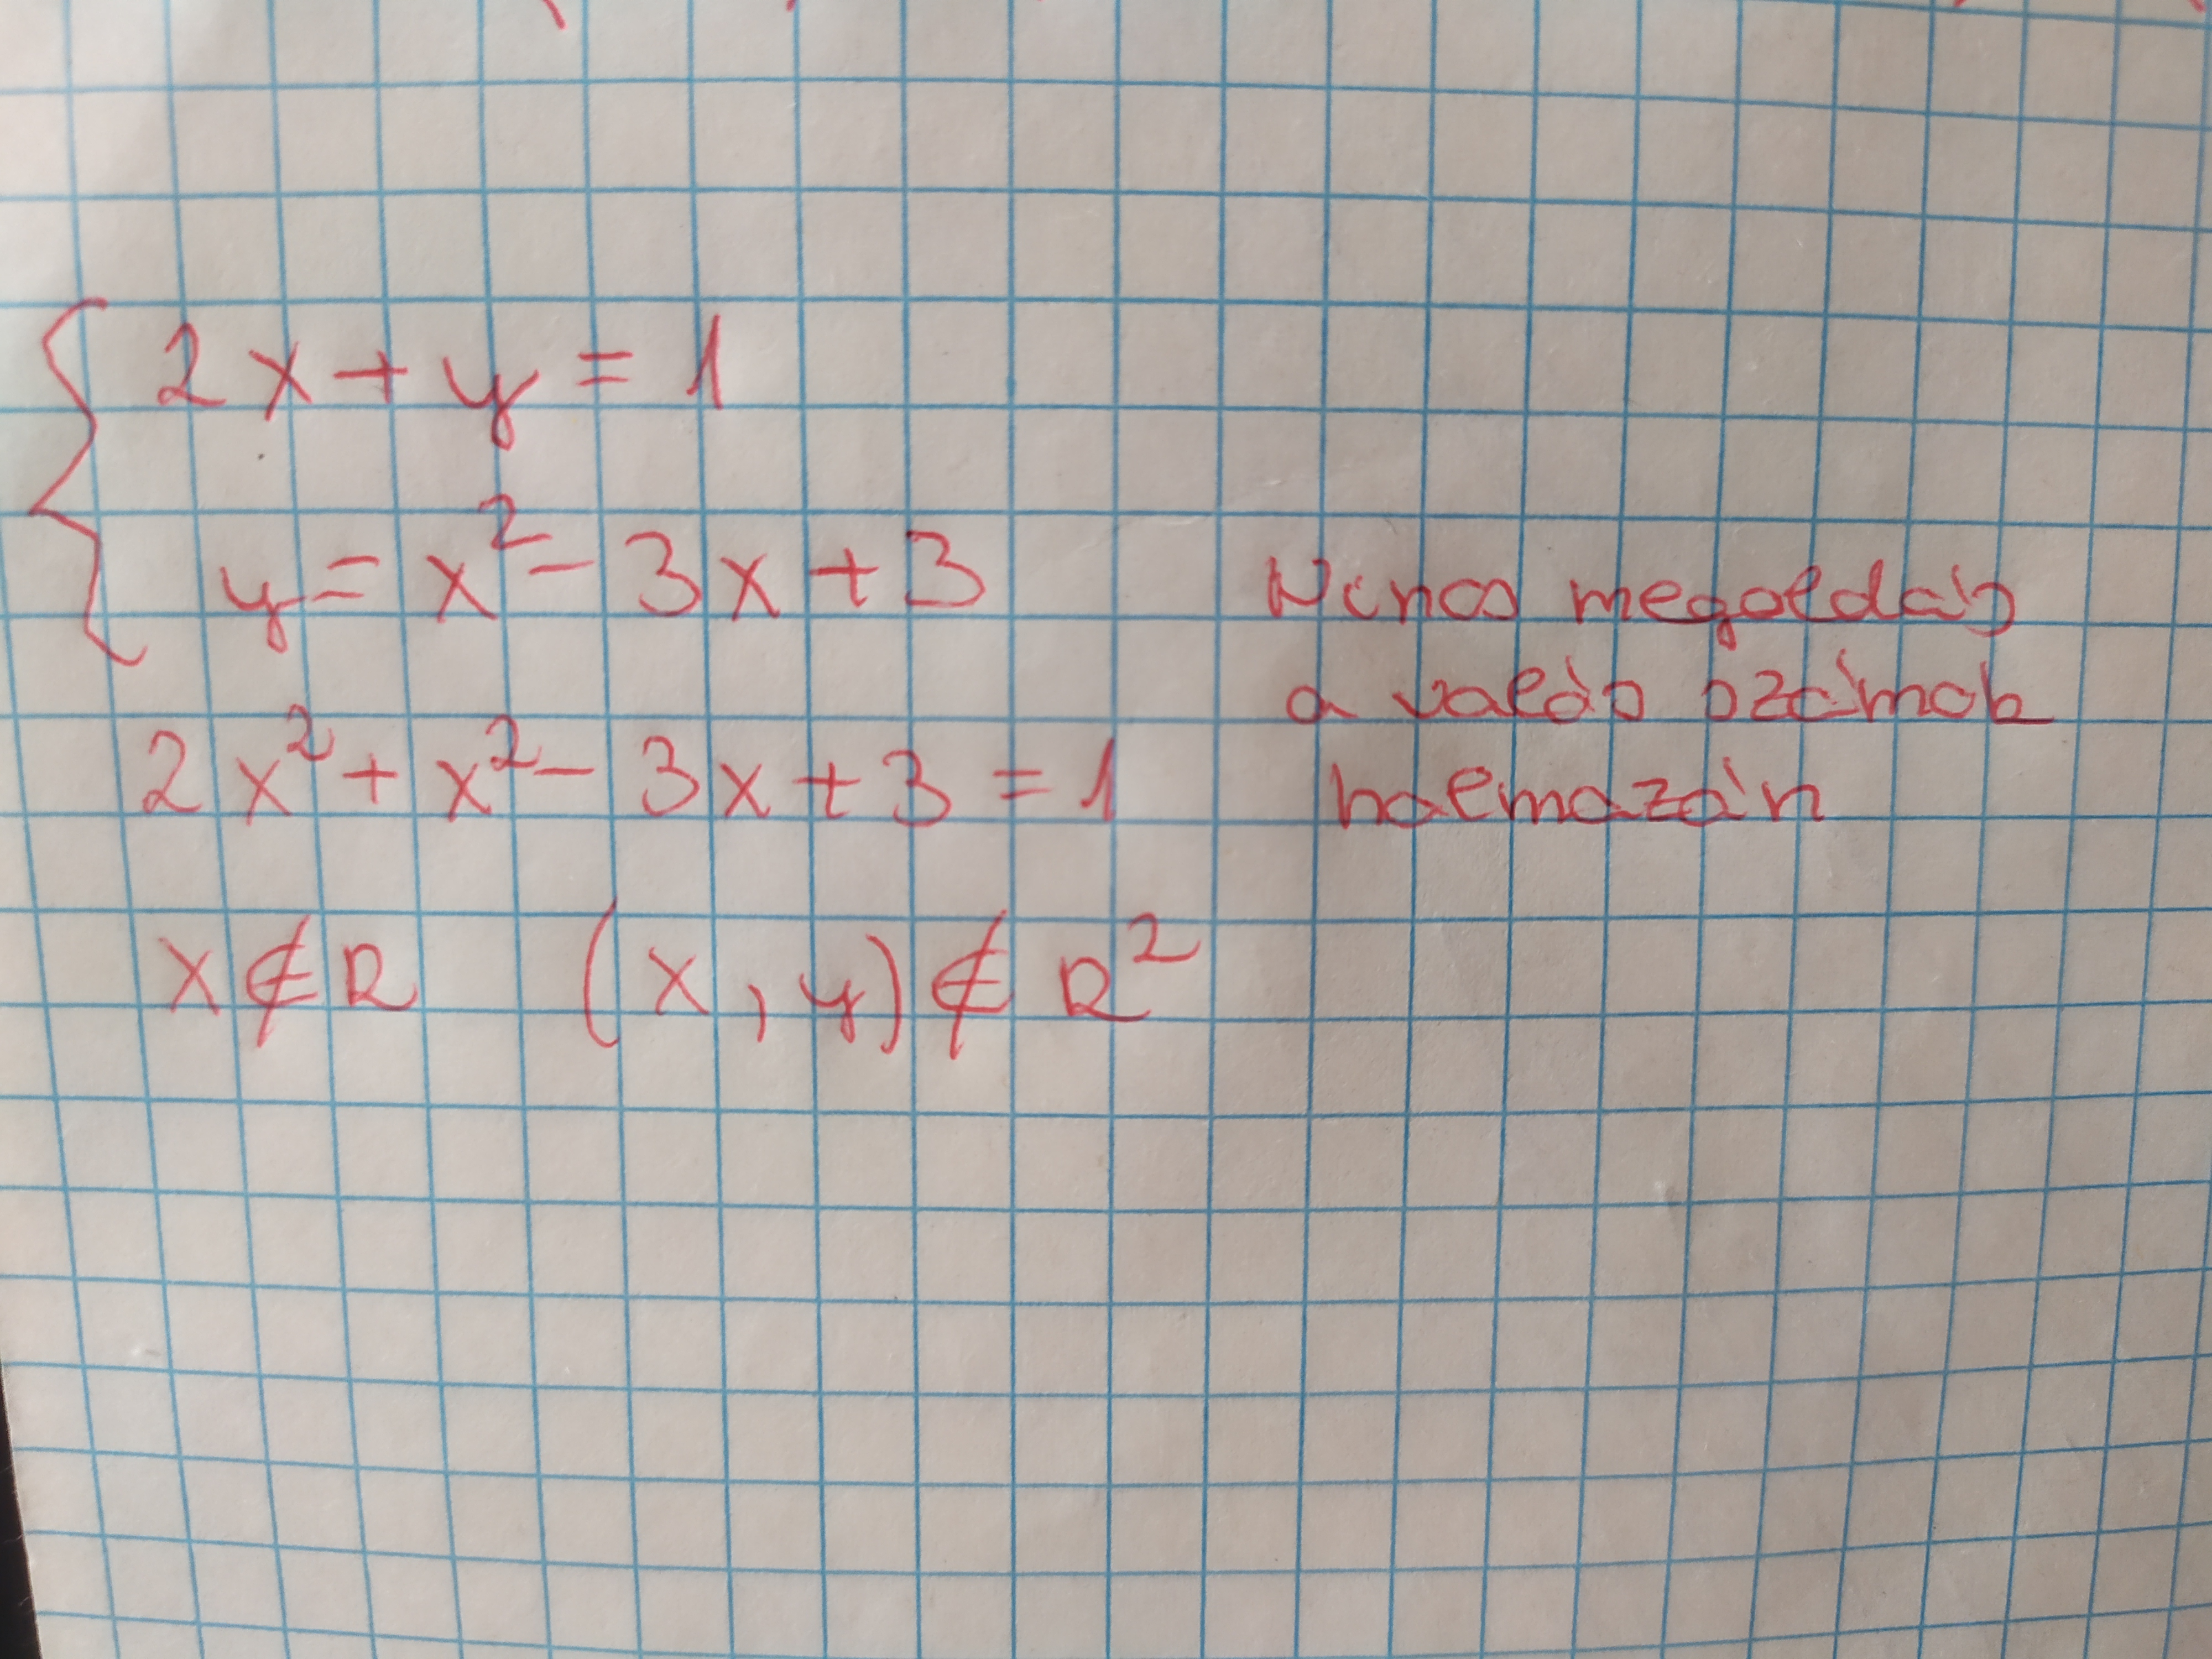 2x + y = 1
y = x² - 3x + 3
2x² + x² - 3x + 3 = 1
x ∉ R (x, y) ∉ R²
Nincs megoldás
a valós számok
halmazán